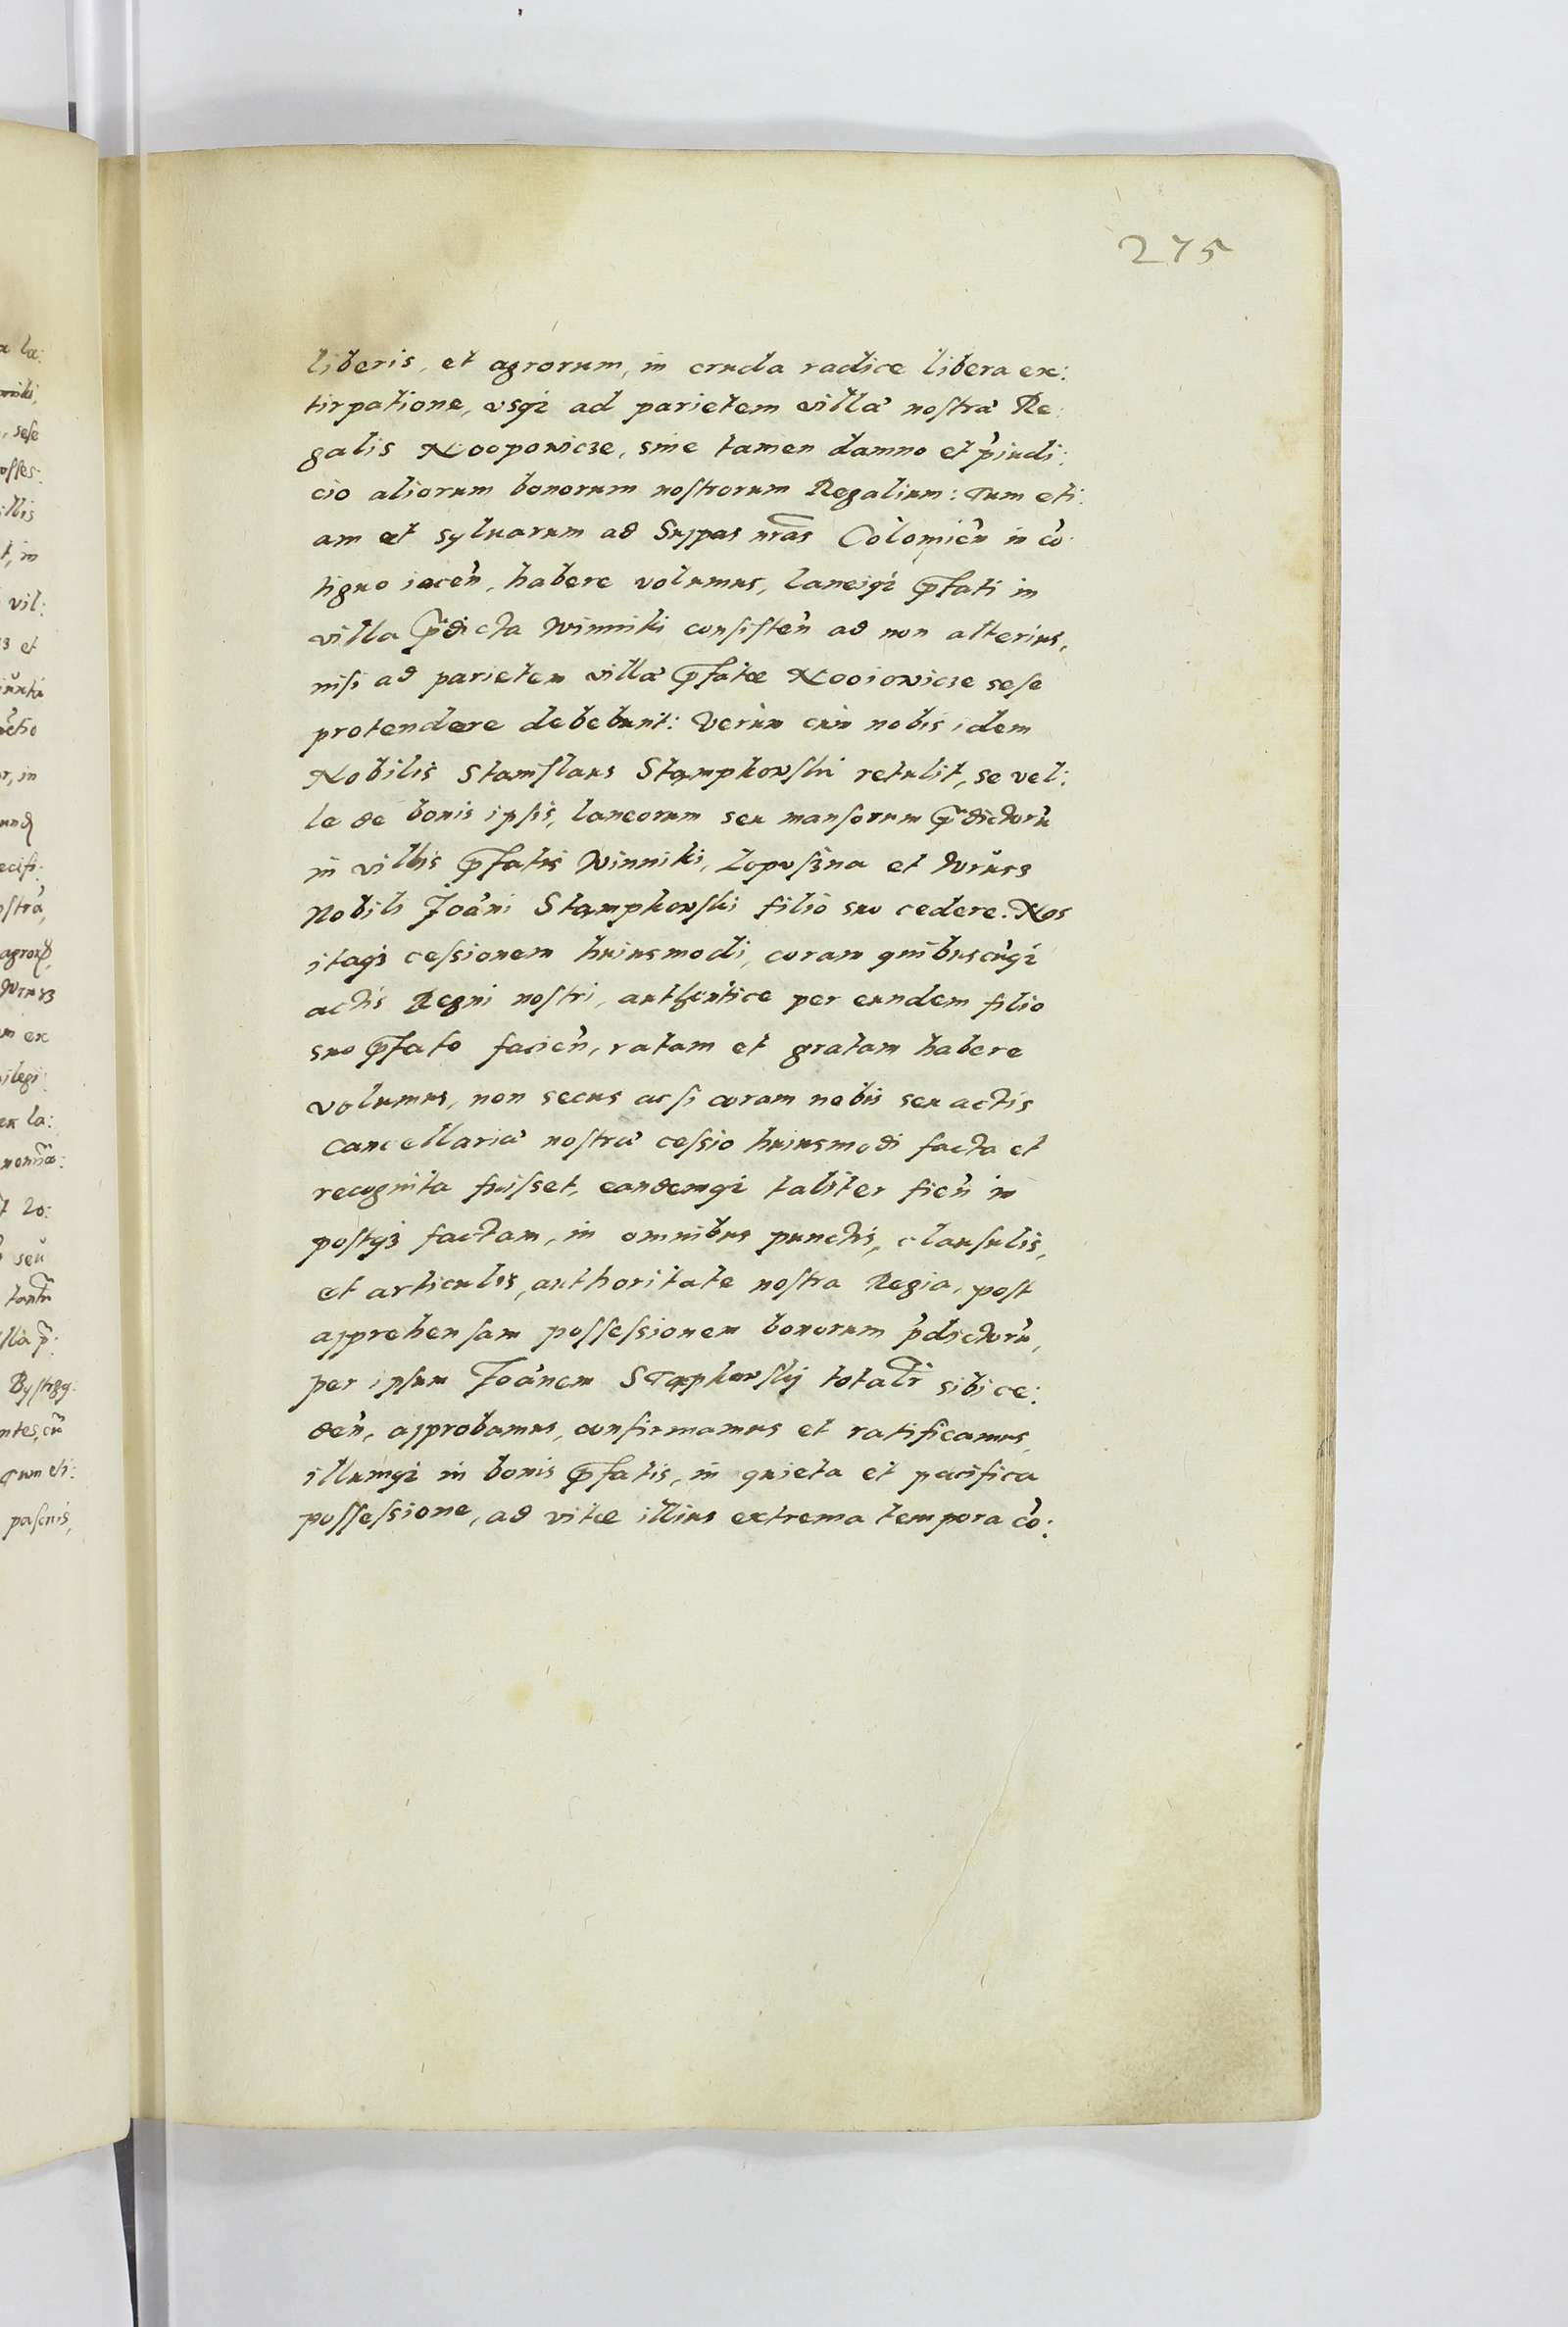 275
liberis, et agrorum, in cruda radice libera ex:
tirpatione, vsq₃ ad parietem villæ nostræ Re:
galis Nooporvicze, sine tamen damno et p̃iudi:
cio aliorum bonorum nostrorum Regalium: Tum eti:
am et syluarum ad Suppas nr̃as Colomień in cõ:
tiguo iaceń, habere volumus, laneiq₃ p̃fati in
villa p̃dicta Winniki consisteń ad non alterius,
nisi ad parietem villæ p̃fatæ sese
protendere debebunt: Verùm cùm nobis idem
Nobilis Stanislaus Stamphowski retulit, se vel:
le de bonis ipsis, laneorum seu mansorum p̃dictorũ
in villis p̃fatis Winniki, Lopuszna et
Nobili Joãni Stamphowski filio suo cedere. Nos
itaq₃ cessionem huiusmodi, coram quibuscũq₃
actis Regni nostri, authentice per eundem filio
suo p̃fato facień, ratam et gratam habere
volumus, non secus ac si coram nobis seu actis
Cancellariæ nostræ cessio huiusmodi facta et
recognita fuisset, eandemq₃ taliter fień in
postq₃ factam, in omnibus punctis, clausulis,
et articulis, authoritate nostra Regia, post
apprehensam possessionem bonorum p̃dictorũ,
per ipsum Joãnem Staphowskj totalr̃ sibi ce:
deń, approbamus, confirmamus et ratificamus,
illumq₃ in bonis p̃fatis, in quieta et pacifica
possessione, ad vitæ illius extrema tempora cõ: